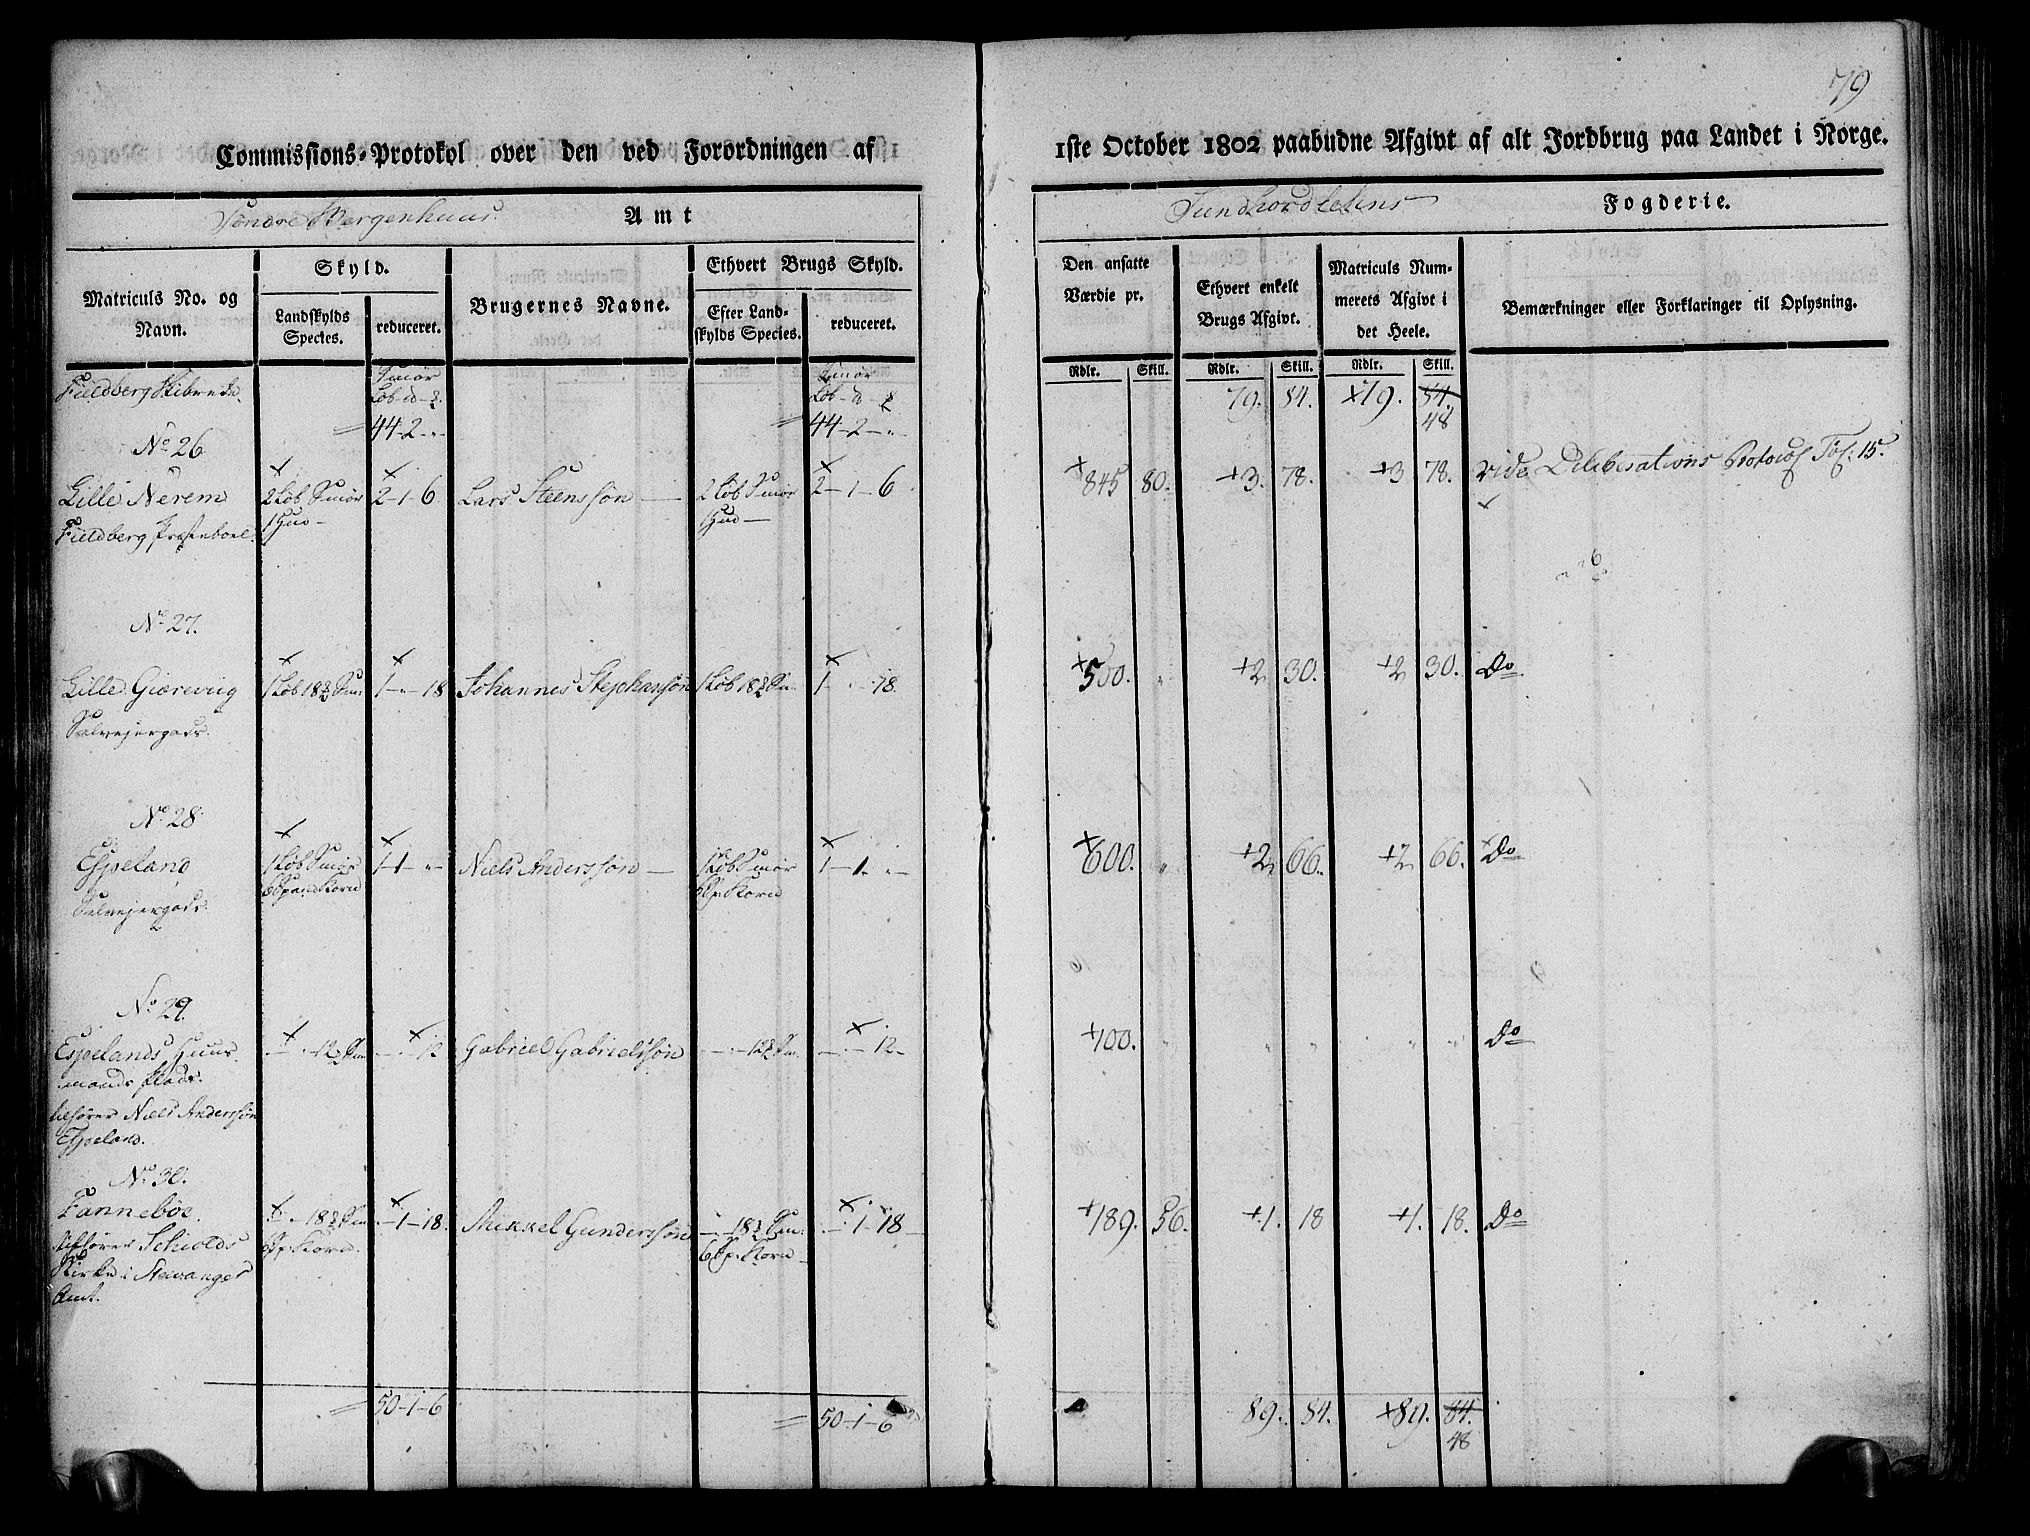 79
Commissions-Protokol over den ved Forordningen af 1ste October 1802 paabudne Afgivt af alt Jordbrug paa Landet i Norge.
Søndre Bergenhuus Amt
Sundhordlehns Fogderie.
Matriculs No. og Navn.
Skyld.
Landskylds Species.
reduceret.
Brugernes Navne.
Ethvert Brugs Skyld.
Efter Landskylds Species.
reduceret.
Den ansatte Værdie pr.
Ethvert enkelt Brugs Afgivt.
Matriculs Nummerets Afgivt i det Heele.
Bemærkninger eller Forklaringer til Oplysning.
Rdlr. Skill. Rdlr. Skill. Rdlr. Skill.
Fieldberg Skibrede
Smør Løb
44-2-"-
Smør Løb
44-2-"-
79. 84. 79. 84.
48
No 26
Lille Nerem 2 Løb Smør 2-1-6 Lars Steenssøn 2 Løb Smør 2-1-6 845 80. 3. 78. 3 78. vide Deliberations Protocol Fol: 15.
1 Hud 1 Hud
Fieldberg Præsteboel
No 27.
Lille Giærevig 1 Løb 18 1-"-18 Johannes Stephanssøn 1 Løb 18 1-"-18. 500. " 2 30. 2 30. Do
Selvejergods.
No 28
Espeland 1 Løb Smør 1-1-"- Niels Anderssøn 1 Løb Smør 1-1-"- 600. " 2 66. 2 66. Do
Korn Korn
Selvejergods.
No 29.
Espelands Huus- 12 12 Gabriel Gabrielssøn 12 12 100. " " " " " Do
mands Plads.
tilhører Niels Anderssøn
Espeland.
No 30.
Fannebøe 18 1-18. Mikkel Gunderssøn 18 1-18 189. 56. 1. 18 1. 18. Do
tilhører Schiolds Korn 6 Sp. Korn
Kirke i Stavanger
Amt.
50-1-6 50-1-6 89. 84. 89. 84.
48